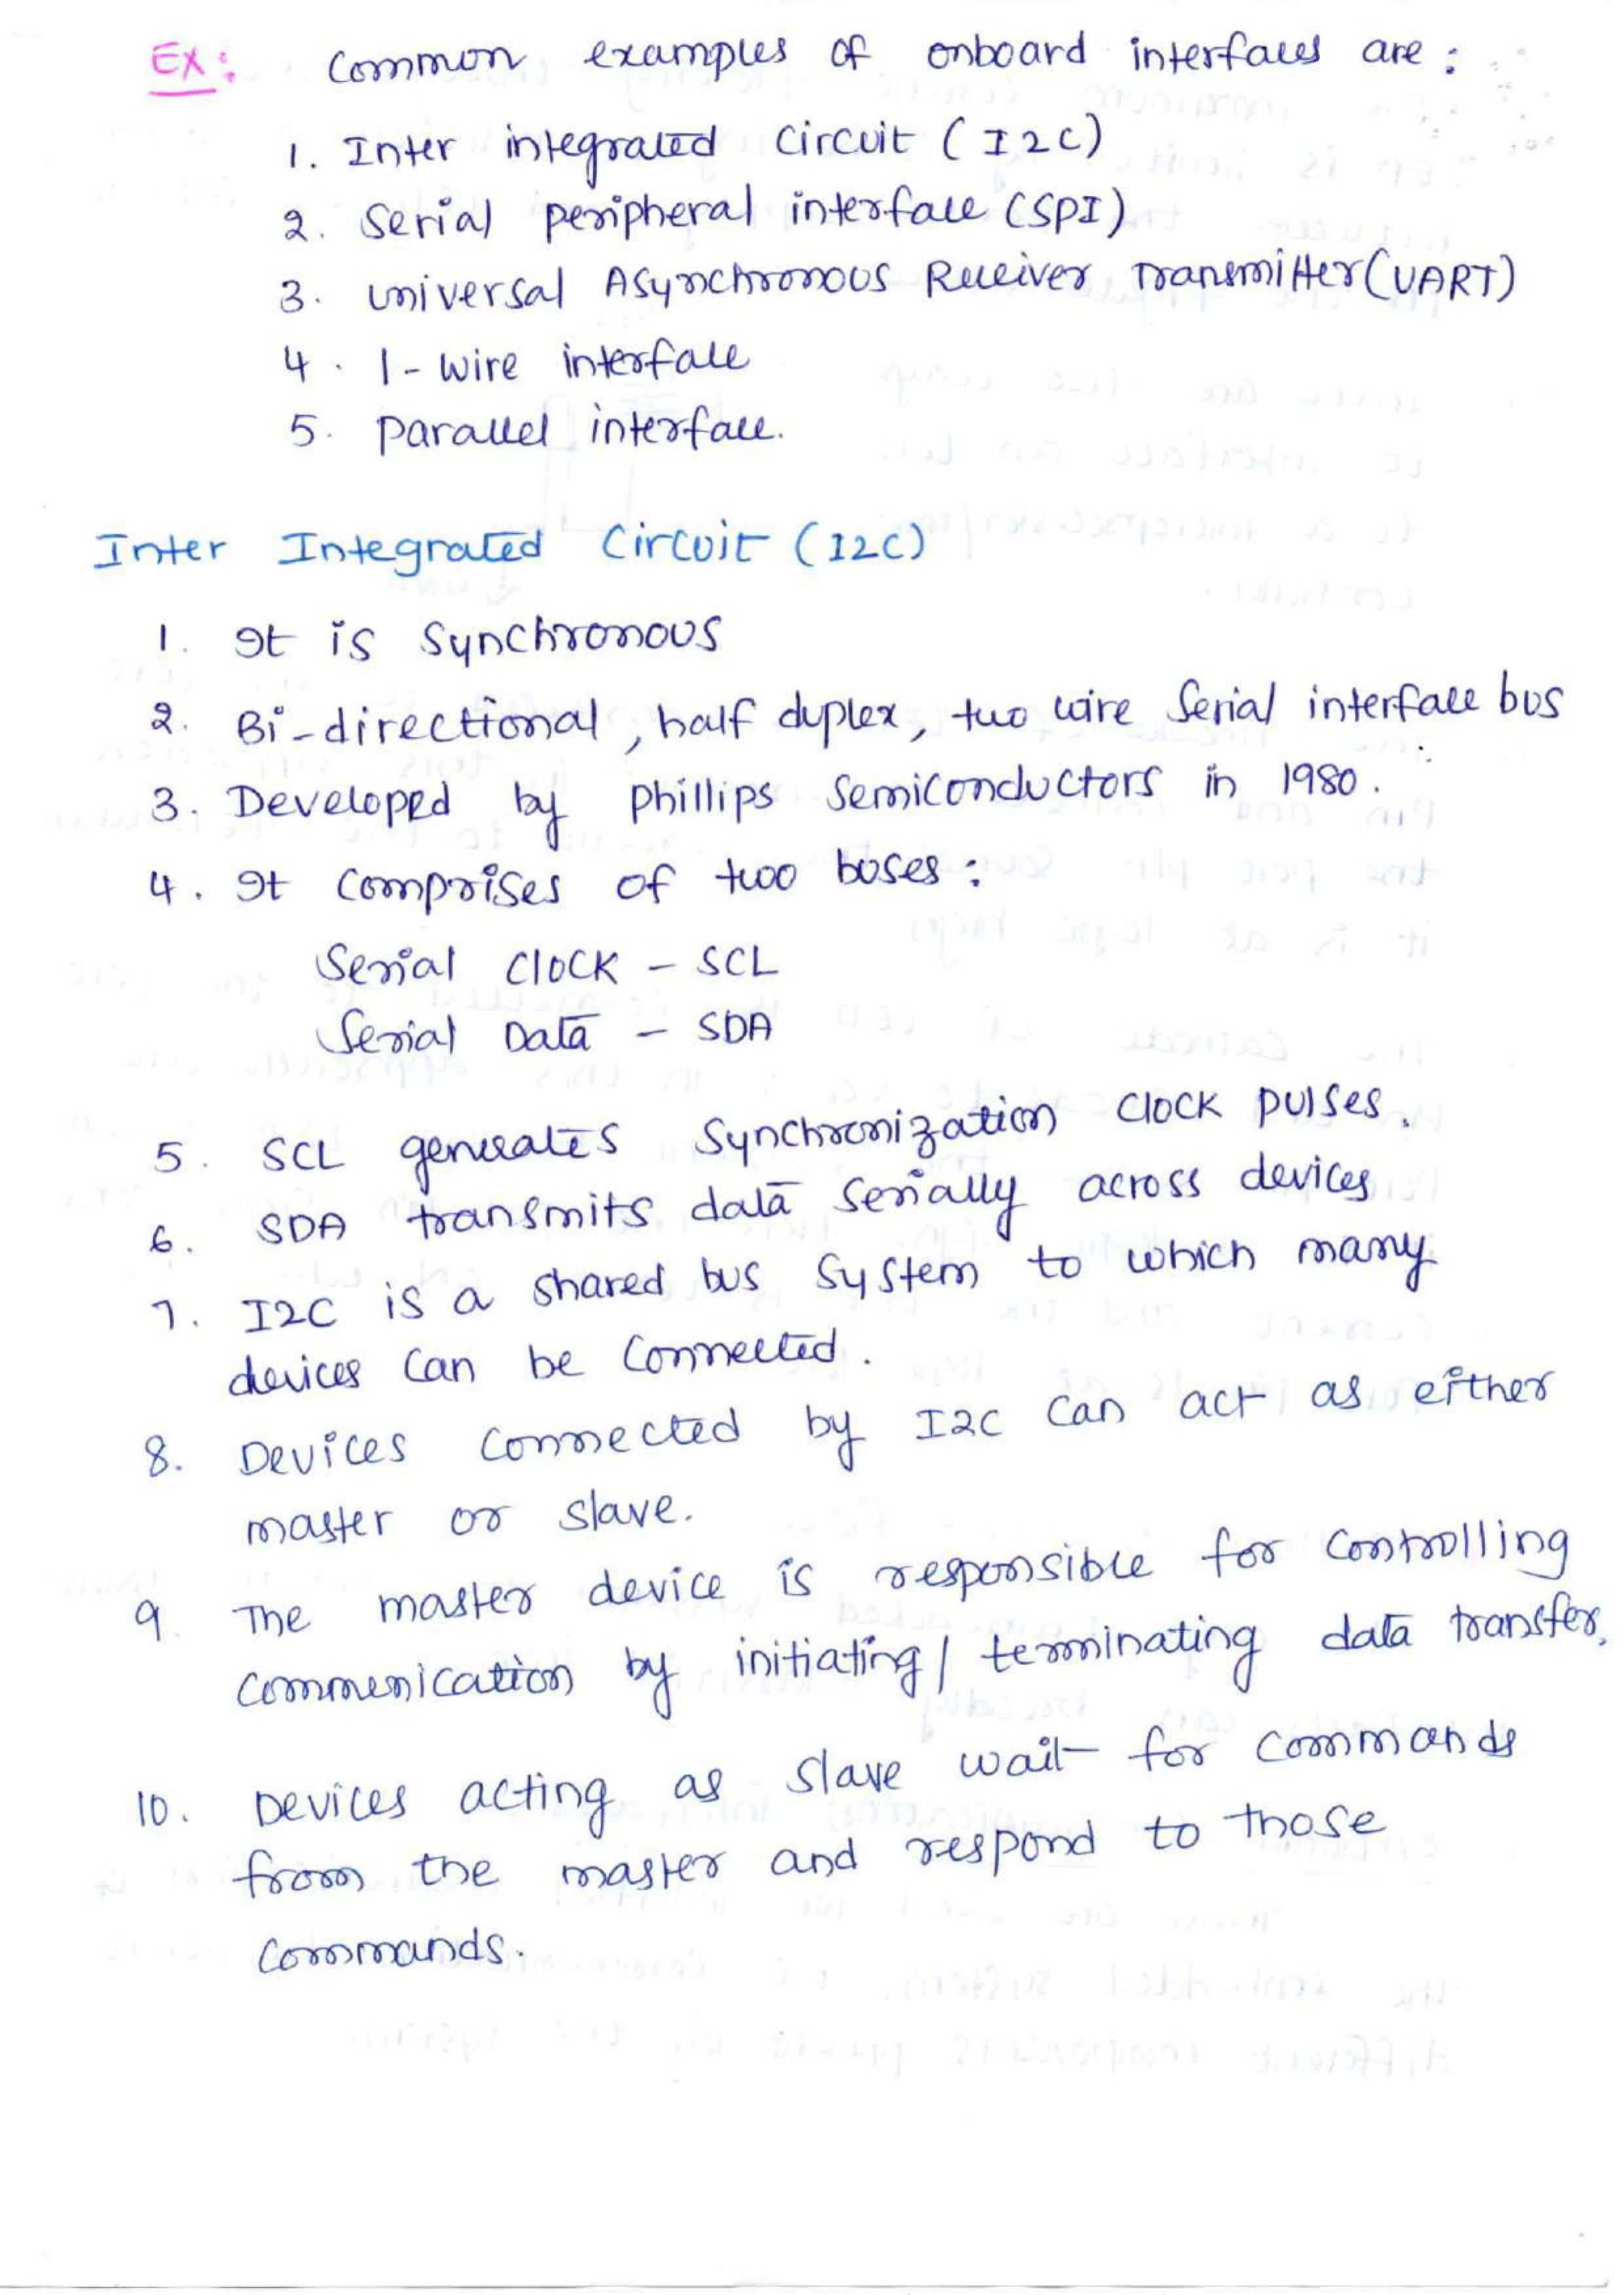 Ex: Common examples of onboard interfaces are :
1. Inter integrated circuit (I2C)
2. Serial peripheral interface (SPI)
3. universal Asynchronous Receiver Transmitter (UART)
4. 1-wire interface
5. parallel interface.
Inter Integrated Circuit (I2C)
1. It is Synchronous
2. Bi-directional, half duplex, two wire Serial interface bus
3. Developed by Phillips Semiconductors in 1980.
4. It comprises of two buses :
Serial Clock - SCL
Serial Data - SDA
5. SCL generates Synchronization clock pulses.
6. SDA transmits data serially across devices
7. I2C is a shared bus system to which many
devices can be connected.
8. Devices connected by I2C can act as either
master or slave.
9. The master device is responsible for controlling
communication by initiating / terminating data transfer.
10. Devices acting as slave wait for commands
from the master and respond to those
commands.